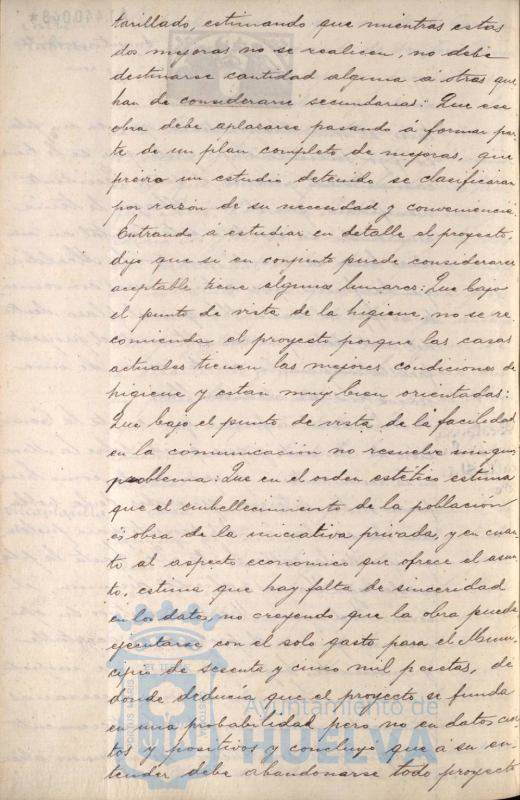 tarillado, estimando que mientras estas
dos mejoras no se realicen, no debe
destinarse cantidad alguna a otras que
han de considerarse secundarias: Que esa
obra debe aplazarse pasando á formar par
te de un plan completo de mejoras, que
prévio un estudio detenido se clasificaran
por razón de su necesidad y conveniencia.
Entrando á estudiar en detalle el proyecto,
dijo que si en conjunto puede considerarse
aceptable tiene algunos lunares: Que bajo
el punto de vista de la higiene, no se re
comienda el proyecto porque las casas
actuales tienen las mejores condiciones de
higiene y estan muy bien orientadas:
Que bajo el punto de vista de la facilidad
en la comunicación no resuelve ningun
problema: Que en el orden estético estima
que el embellecimiento de la población
es obra de la iniciativa privada, y en cuan
to al aspecto economico que ofrece el asun
to, estima que hay falta de sinceridad
en los datos, no creyendo que la obra pueda
ejecutarse con el solo gasto para el Muni
cipio de sesenta y cinco mil pesetas, de
donde deducia que el proyecto se funda
en una probabilidad pero no en datos cier
tos y positivos y concluyo que á su en
tender debe abandonarse todo proyecto
Ayuntamiento de
HUELVA